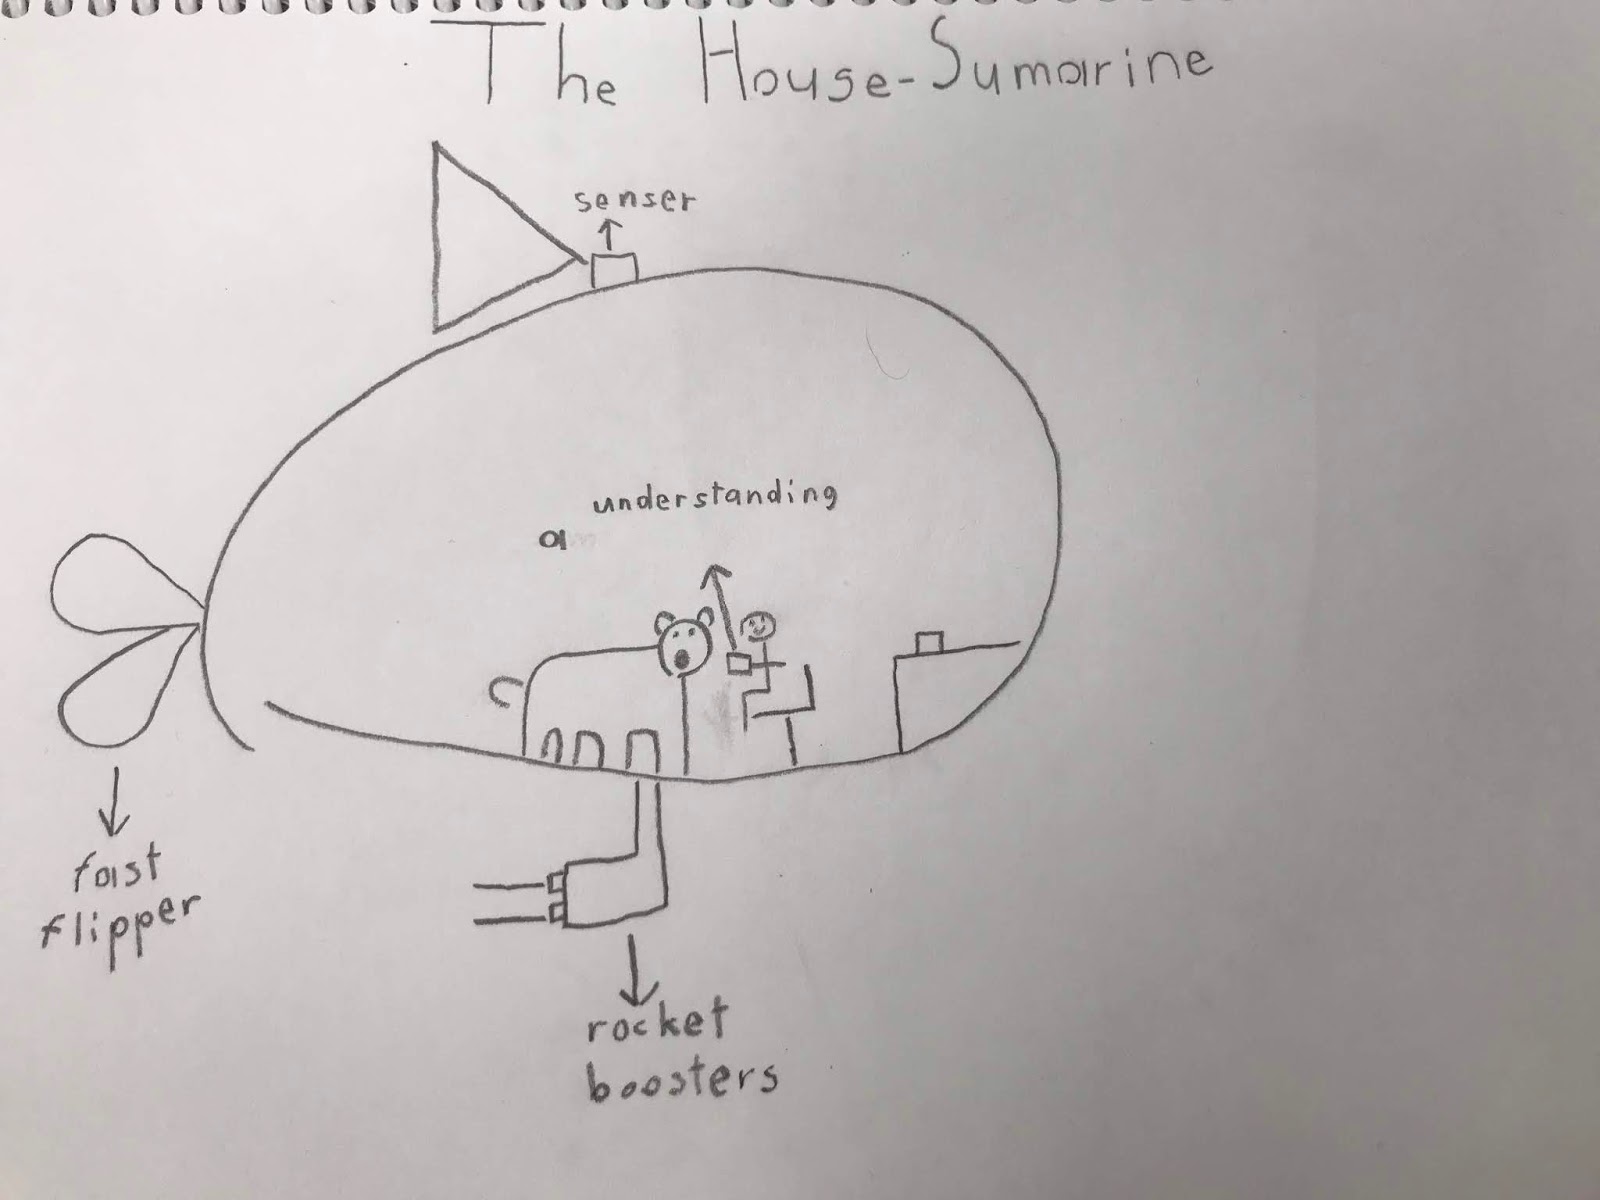 The House-Sumarine
senser
understanding
a
fast
flipper
rocket
boosters